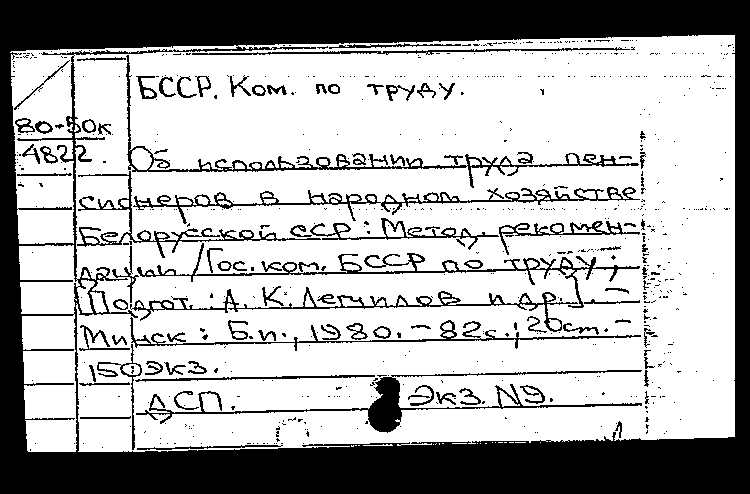 БССР. Ком. по труду.
80-50к
4822.
Об использовании труда пен-
сионеров в народном хозяйстве
Белорусской ССР : Метод. рекомен-
дации / Гос. ком. БССР по труду ;
[Подгот. : А. К. и др.]. -
Минск : Б.и., 1980. - 82с. ; 20см. -
150экз.
ДСП. Экз. N9.